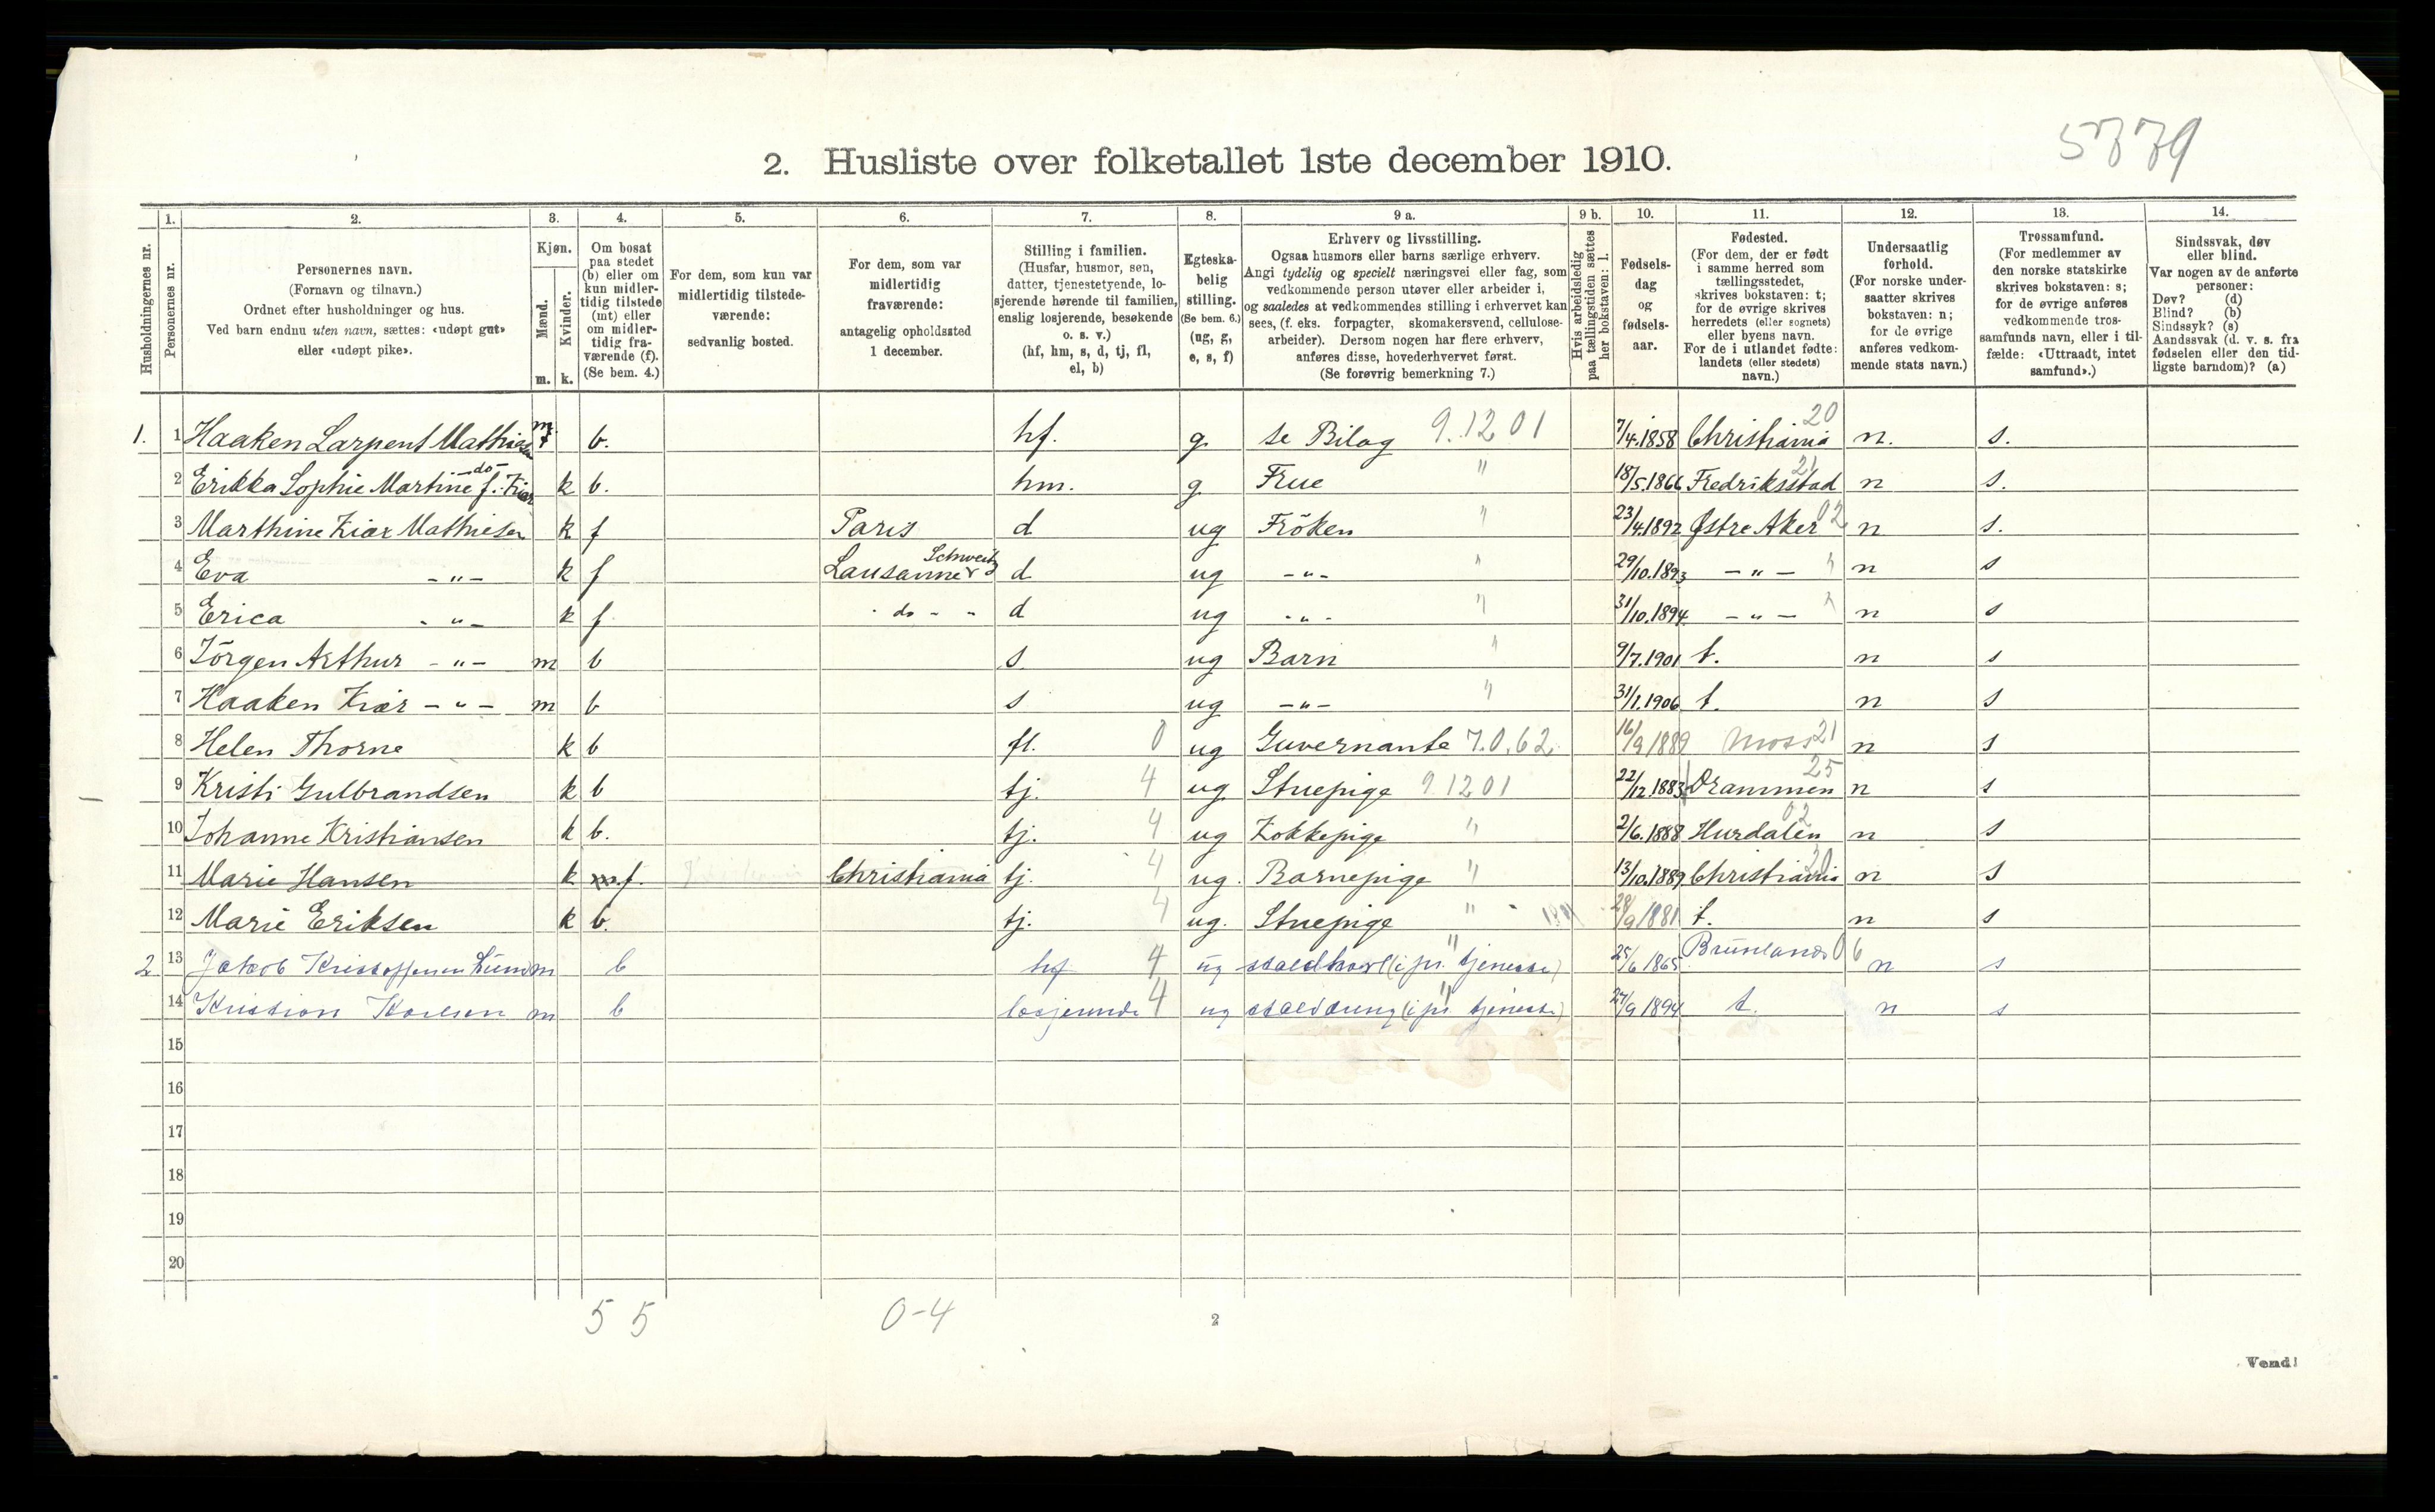 5779
2. Husliste over folketallet 1ste december 1910.
Husholdningernes nr.
1.
Personernes nr.
2.
Personernes navn.
(Fornavn og tilnavn.)
Ordnet efter husholdninger og hus.
Ved barn endnu uten navn, sættes: «udøpt gut»
eller «udøpt pike».
3.
Kjøn.
Mænd.
m.
Kvinder.
k.
4.
Om bosat
paa stedet
(b) eller om
kun midler-
tidig tilstede
(mt) eller
om midler-
tidig fra-
værende (f).
(Se bem. 4.)
5.
For dem, som kun var
midlertidig tilstede-
værende:
sedvanlig bosted.
6.
For dem, som var
midlertidig
fraværende:
antagelig opholdssted
1 december.
7.
Stilling i familien.
(Husfar, husmor, søn,
datter, tjenestetyende, lo-
sjerende hørende til familien,
enslig losjerende, besøkende
o. s. v.)
(hf, hm, s, d, tj, fl,
el, b)
8.
Egteska-
belig
stilling.
(Se bem. 6.)
(ug, g,
e, s, f)
9 a.
Erhverv og livsstilling.
Ogsaa husmors eller barns særlige erhverv.
Angi tydelig og specielt næringsvei eller fag, som
vedkommende person utøver eller arbeider i,
og saaledes at vedkommendes stilling i erhvervet kan
sees, (f. eks. forpagter, skomakersvend, cellulose-
arbeider). Dersom nogen har flere erhverv,
anføres disse, hovederhvervet først.
(Se forøvrig bemerkning 7.)
9 b.
Hvis arbeidsledig
paa tællingstiden sættes
her bokstaven: l.
10.
Fødsels-
dag
og
fødsels-
aar.
11.
Fødested.
(For dem, der er født
i samme herred som
tællingsstedet,
skrives bokstaven: t;
for de øvrige skrives
herredets (eller sognets)
eller byens navn.
For de i utlandet fødte:
landets (eller stedets)
navn.)
12.
Undersaatlig
forhold.
(For norske under-
saatter skrives
bokstaven: n;
for de øvrige
anføres vedkom-
mende stats navn.)
13.
Trossamfund.
(For medlemmer av
den norske statskirke
skrives bokstaven: s;
for de øvrige anføres
vedkommende tros-
samfunds navn, eller i til-
fælde: «Uttraadt, intet
samfund».)
14.
Sindssvak, døv
eller blind.
Var nogen av de anførte
personer:
Døv? (d)
Blind? (b)
Sindssyk? (s)
Aandssvak (d. v. s. fra
fødselen eller den tid-
ligste barndom)? (a)
1. 1 Haaken Larpent Mathiesen m b. hf. g. se Bilag 9.12 01 7/4.1858 Christiania 20 n. s.
2 Erikka Sophie Martine -do- f. Kiær k b. hm. g Frue " 18/5.1866 Fredriksstad 21 n s.
3 Marthine Kiær Mathiesen k f Paris d ug Fröken " 23/4.1892 Østre Aker 02 n s.
4 Eva -"- k f Lausanne Schweitz d ug -"- " 29/10.1893 -"- " n s
5 Erica -"- k f - do - - d ug -"- " 31/10.1894 -"- " n s
6 Jörgen Arthur -"- m b s ug Barn " 9/7.1901 t. n s
7 Haaken Kiær -"- m b s ug -"- " 31/1.1906 t. n s
8 Helen Thorne k b fl. 0 ug Guvernante 7.0.62 16/9 1889 Moss 21 n s
9 Kristi Gulbrandsen k b tj. 4 ug Stuepige 9.1201 22/12.1883 Drammen 25 n s
10 Johanne Kristiansen k b. tj. 4 ug Kokkepige " 2/6.1888 Hurdalen 02 n s
11 Marie Hansen k f. Christiania tj. 4 ug. Barnepige " 13/10.1889 Christiania 20 n s
12 Marie Eriksen k b. tj. 4 ug. Stuepige " 28/9 1881 t. n s
2 13 Jakob Kristoffersen Lund m b hf 4 ug staldkarl (i pr. tjeneste) " 25/6 1865 Brunlanæs 06 n s
14 Kristian Karlsen m b losjerende 4 ug staldgreng (i pr. tjeneste) " 27/9 1894 t. n s
15
16
17
18
19
20
5 5 0-4
2
Vend!